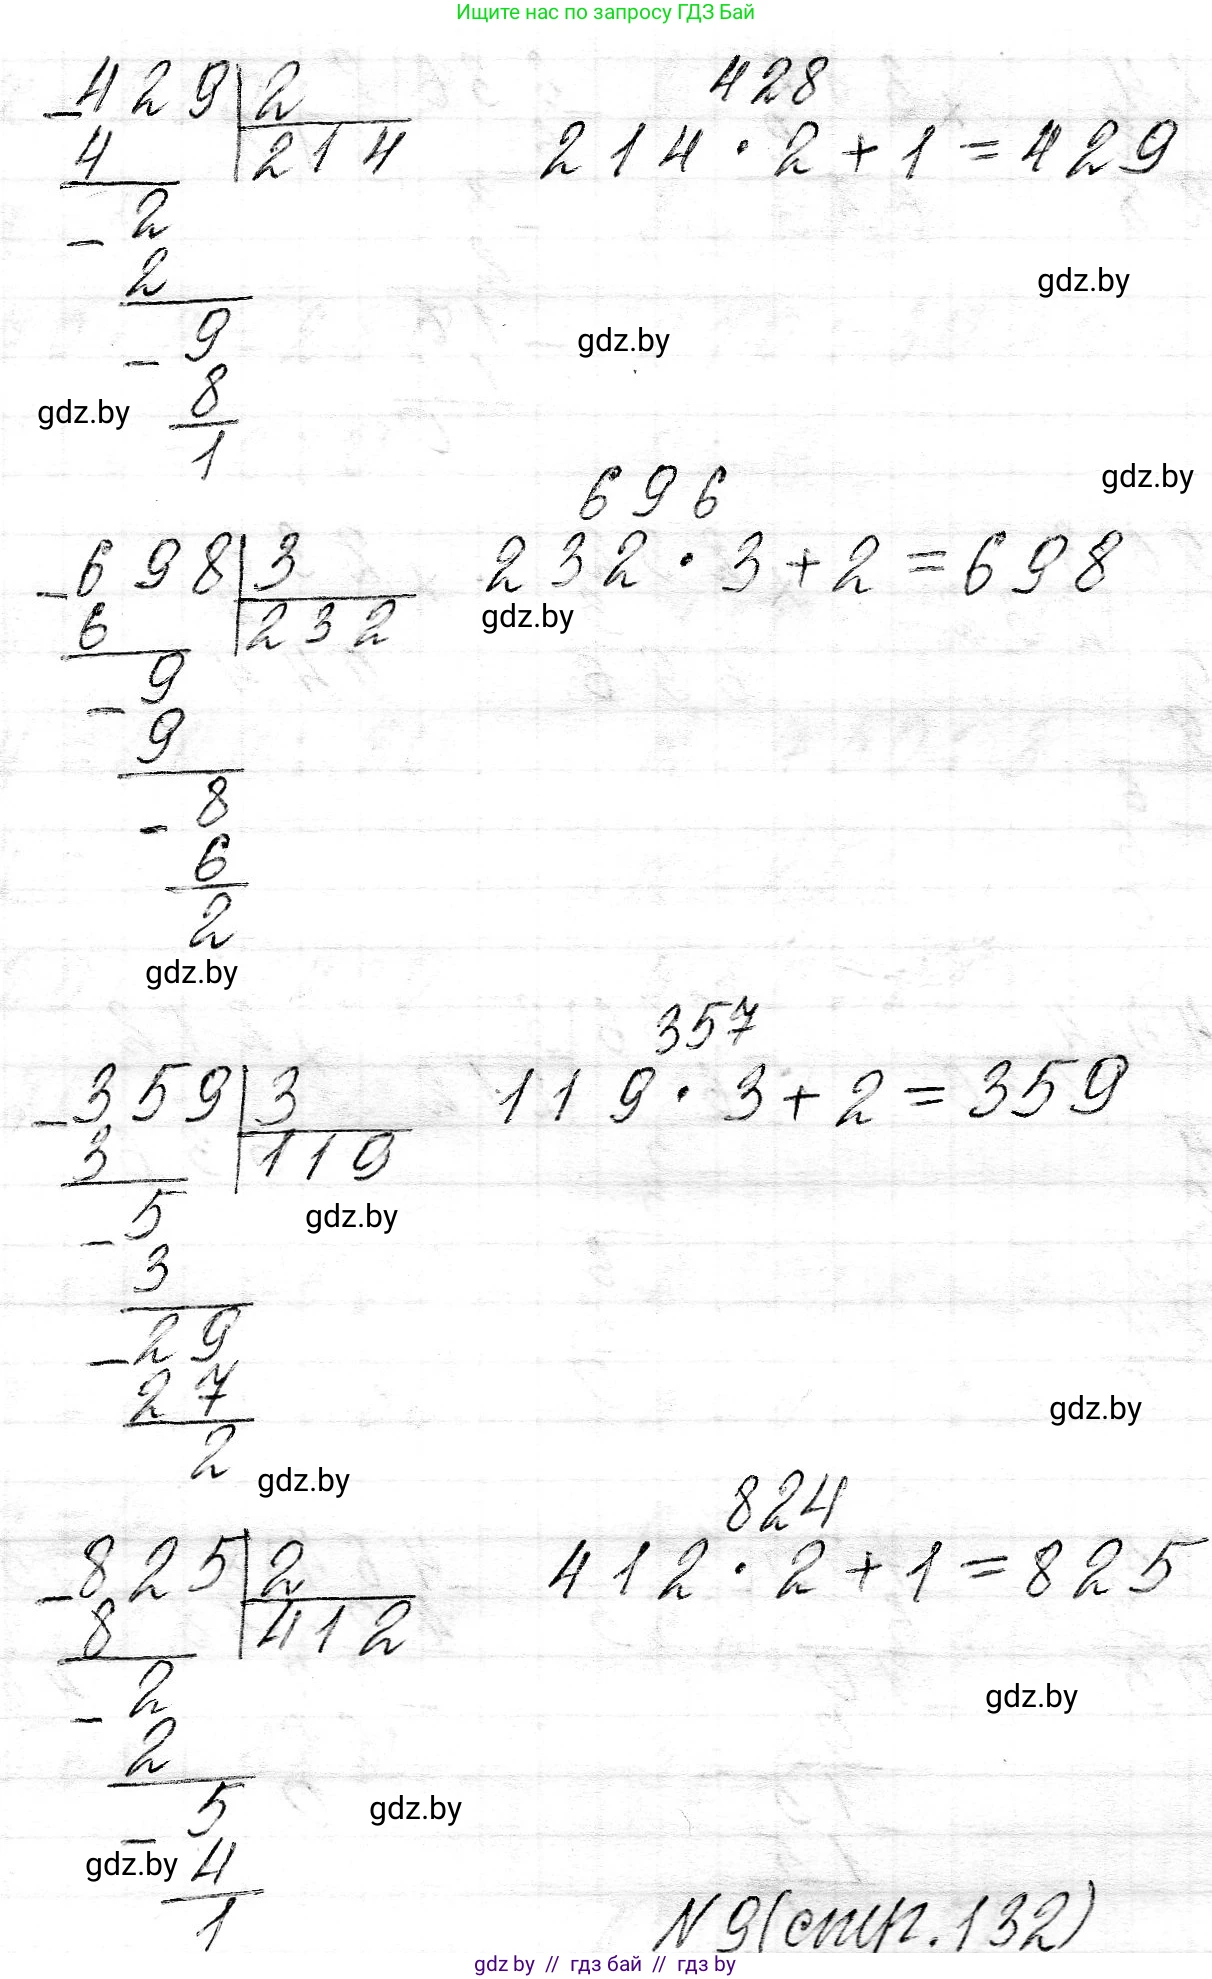 Ищите нас по запросу ГДЗ Бай
428
429 2 214 · 2 + 1 = 429
4 214
2
2
gdz.by
9
gdz.by
8
gdz.by
1
gdz.by
696
698 3 232 · 3 + 2 = 698
6 232
gdz.by
9
9
8
6
2
gdz.by
357
359 3 119 · 3 + 2 = 359
3 119
5
gdz.by
3
29
27
gdz.by
2
gdz.by
824
825 2 412 · 2 + 1 = 825
8 412
2
gdz.by
2
5
gdz.by
4
gdz.by
1
N 9 (стр. 132)
gdz by // гдз бай // гдз by